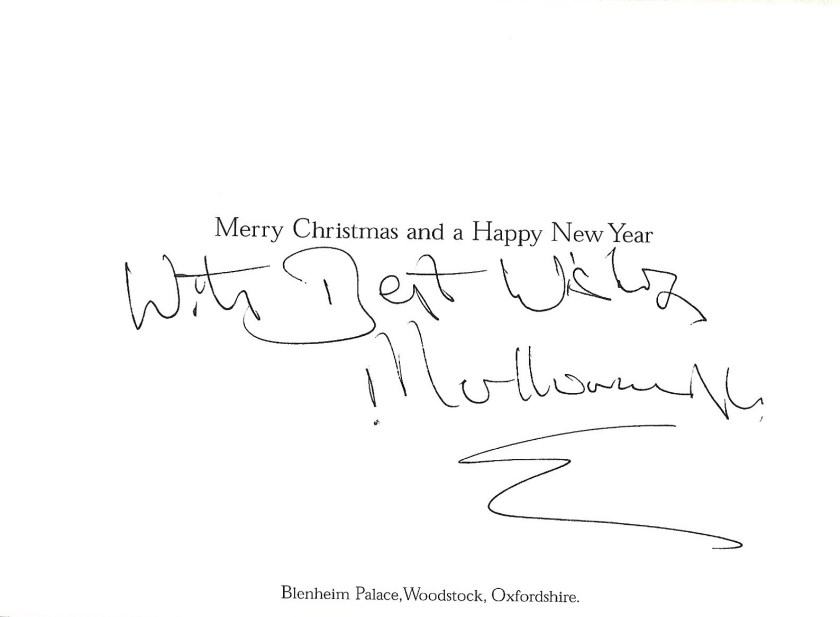 Merry Christmas and a Happy New Year
With Best Wishes
Marlborough
Blenheim Palace, Woodstock, Oxfordshire.